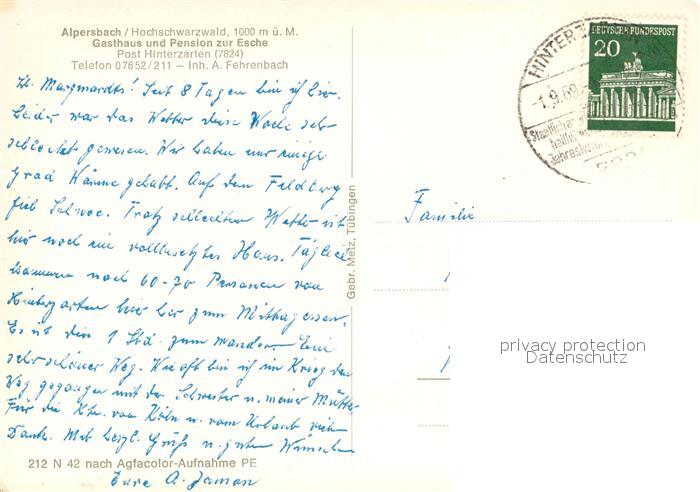 Alpersbach / Hochschwarzwald, 1000 m ü. M.
Gasthaus und Pension zur Esche
Post Hinterzarten (7824)
Telefon 07652/211 — Inh. A. Fehrenbach
Lb. Marquardts! Seit 8 Tagen bin ich hier.
Leider war das Wetter diese Woche sehr
schlecht gewesen. Wir haben nur einige
Grad Wärme gehabt. Auf dem Feldberg
fiel Schnee. Trotz schlechten Wetter ist
hier noch ein vollbesetztes Haus. Täglich
kommen noch 60-70 Personen von
Hinterzarten hier her zum Mittagessen.
Es ist dies 1 Std. zum wandern. Ein
sehr schöner Weg. Wie oft bin ich im Krieg den
Weg gegangen mit der Schwester u. meiner Mutter
Für die Kte. von Köln u. vom Urlaub vielen
Dank. Mit herzl. Gruß u. guten Wünschen
212 N 42 nach Agfacolor-Aufnahme PE
Eure A.
Gebr. Metz, Tübingen
HINTERZ
-1.9.69
DEUTSCHE BUNDESPOST
20
Familie
privacy protection
Datenschutz